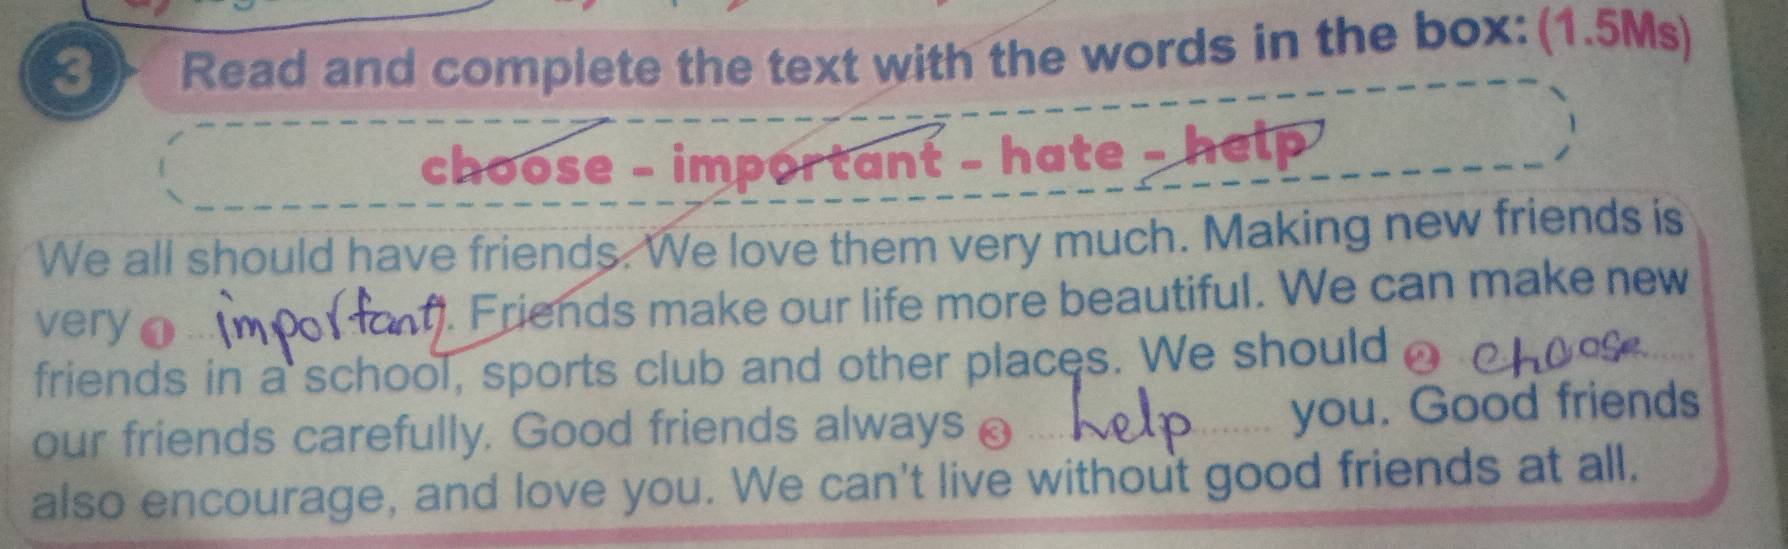 3 Read and complete the text with the words in the box: (1.5Ms)
choose - important - hate - help
We all should have friends. We love them very much. Making new friends is
very 1 important. Friends make our life more beautiful. We can make new
friends in a school, sports club and other places. We should 2 choose
our friends carefully. Good friends always 3 help you. Good friends
also encourage, and love you. We can't live without good friends at all.